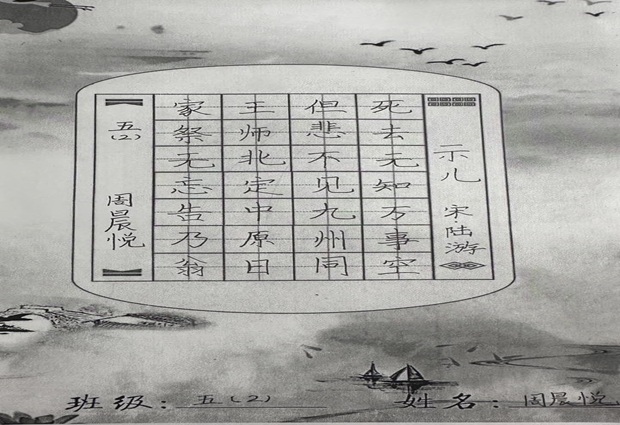 示儿 宋·陆游
死去无知万事空
但悲不见九州同
王师北定中原日
家祭无忘告乃翁
五(2) 周晨悦
班级：五(2) 姓名：周晨悦